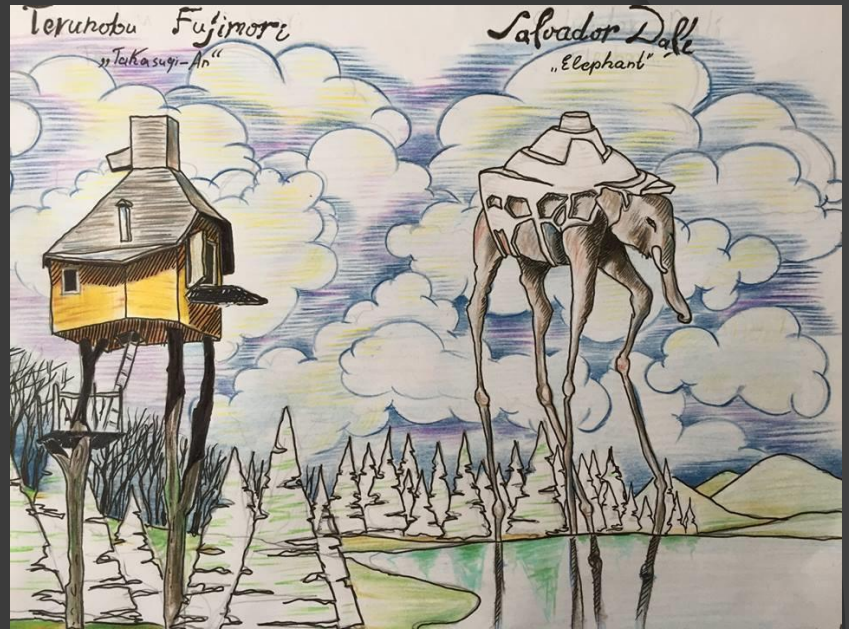 Terunobu Fujimori
„Takasugi-An“
Salvador Dali
„Elephant“